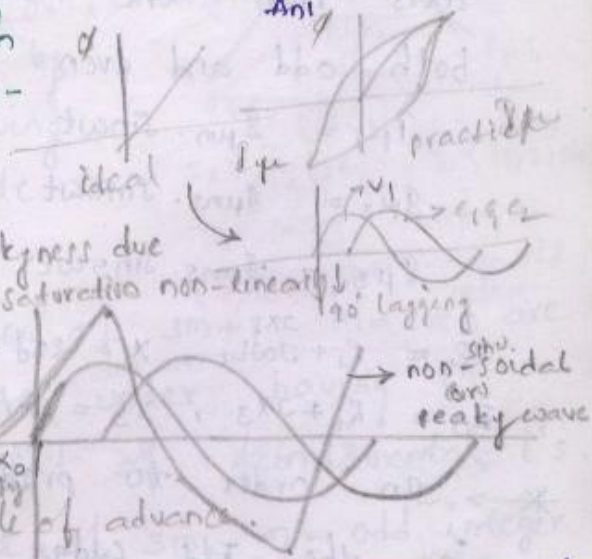 Ani
φ
φ
ideal
Iμ
practical Iμ
V1
e1 & e2
kyness due
saturation non-linearity
90° lagging
non-sinusoidal
(or)
peaky wave
le of advance.